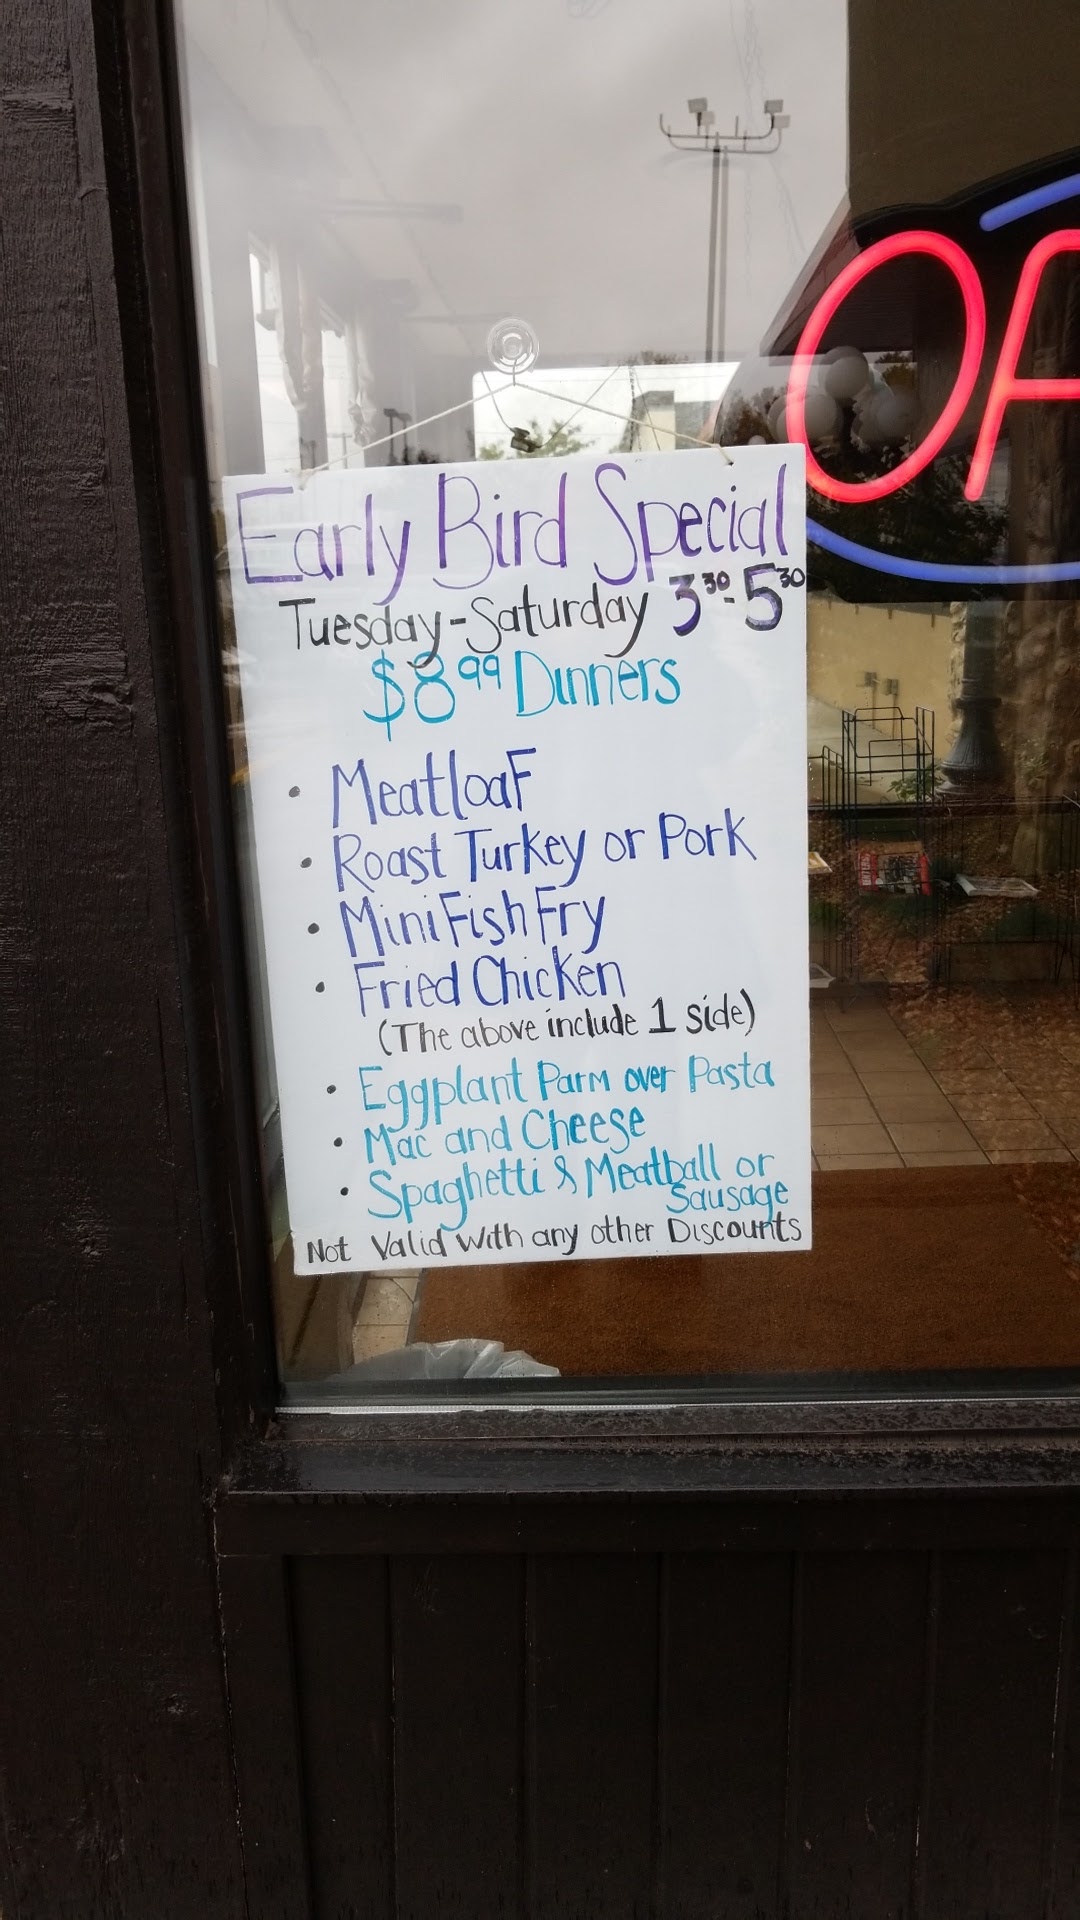 Early Bird Special
Tuesday-Saturday 3³⁰-5³⁰
$8⁹⁹ Dinners
• Meatloaf
• Roast Turkey or Pork
• Mini Fish Fry
• Fried Chicken
(The above include 1 side)
• Eggplant Parm over Pasta
• Mac and Cheese
• Spaghetti & Meatball or
Sausage
Not Valid with any other Discounts
OP